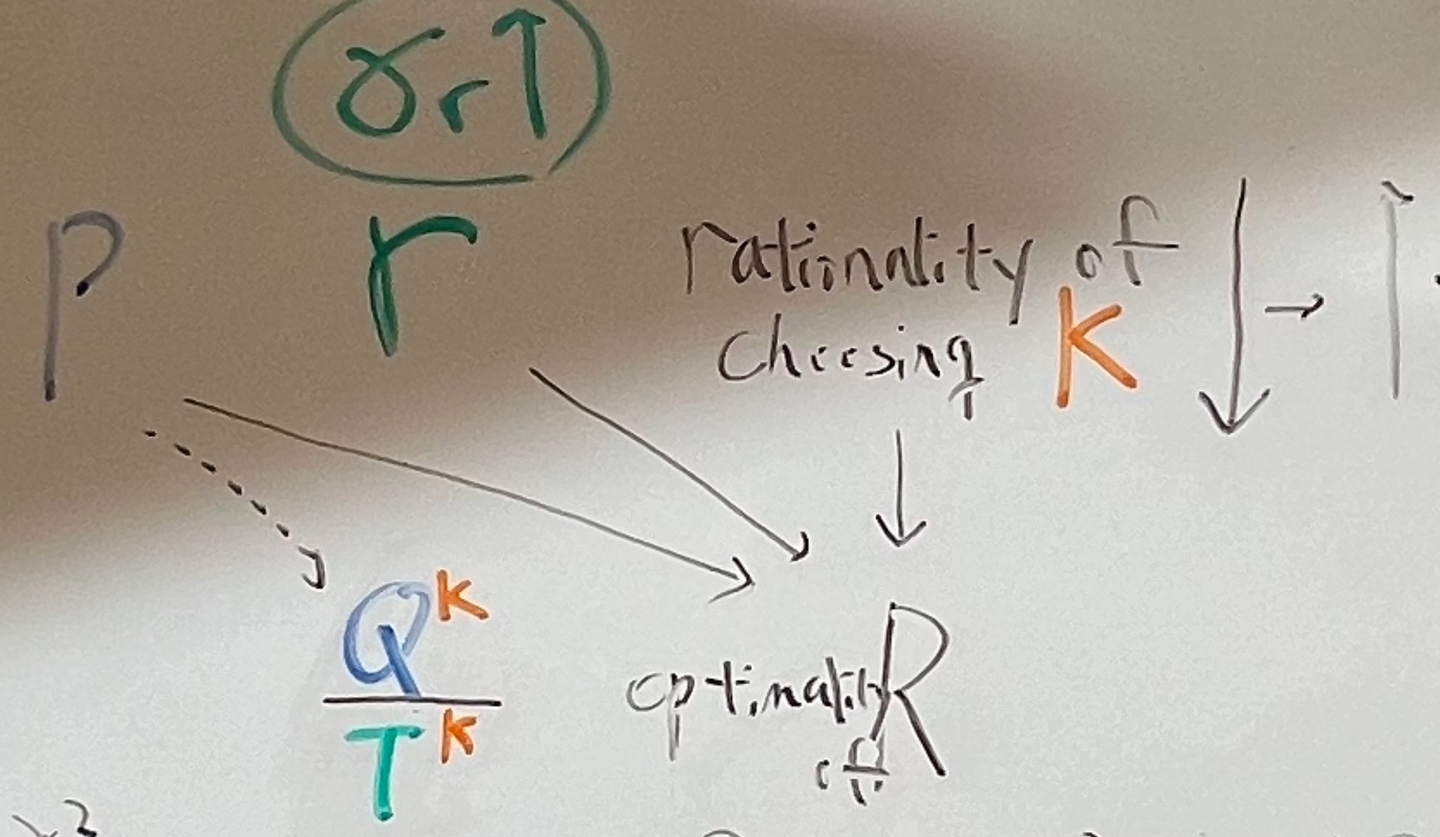 γr↑
P r rationality of
choosing K ↓ →
Q^K
T^K
optimality R
of
2